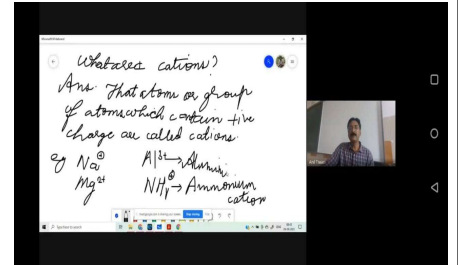 What ares cations?
Ans. That atoms or group
of atoms which contain +ive
charge are called cations.
eg Na⊕ Al3+→Alumini.
Mg2+ NH4⊕→Ammonium
cation
Type here to search